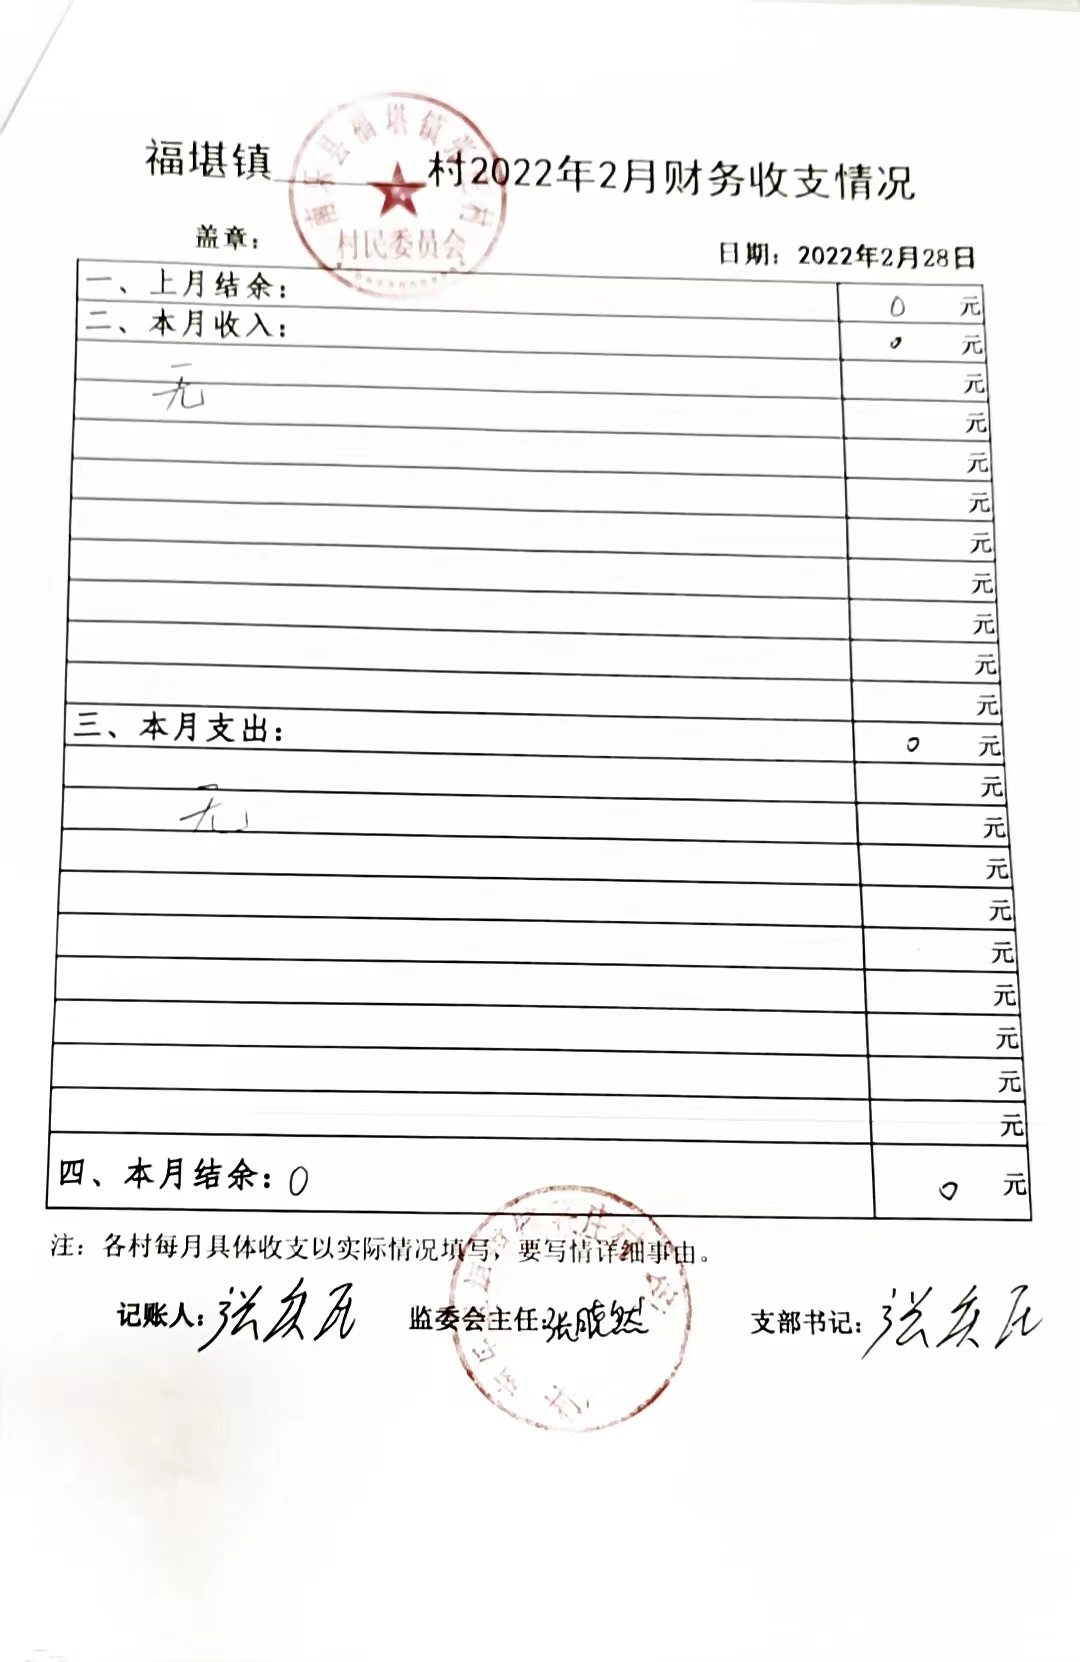 福堪镇 村2022年2月财务收支情况
南乐县福堪镇 村
村民委员会
盖章： 日期：2022年2月28日
一、上月结余： 0 元
二、本月收入： 0 元
无 元
元
元
元
元
元
元
元
元
三、本月支出： 0 元
无 元
元
元
元
元
元
元
元
元
四、本月结余：0 0 元
注：各村每月具体收支以实际情况填写，要写情详细事由。
记账人：张庆民 监委会主任：张晓然 支部书记：张庆民